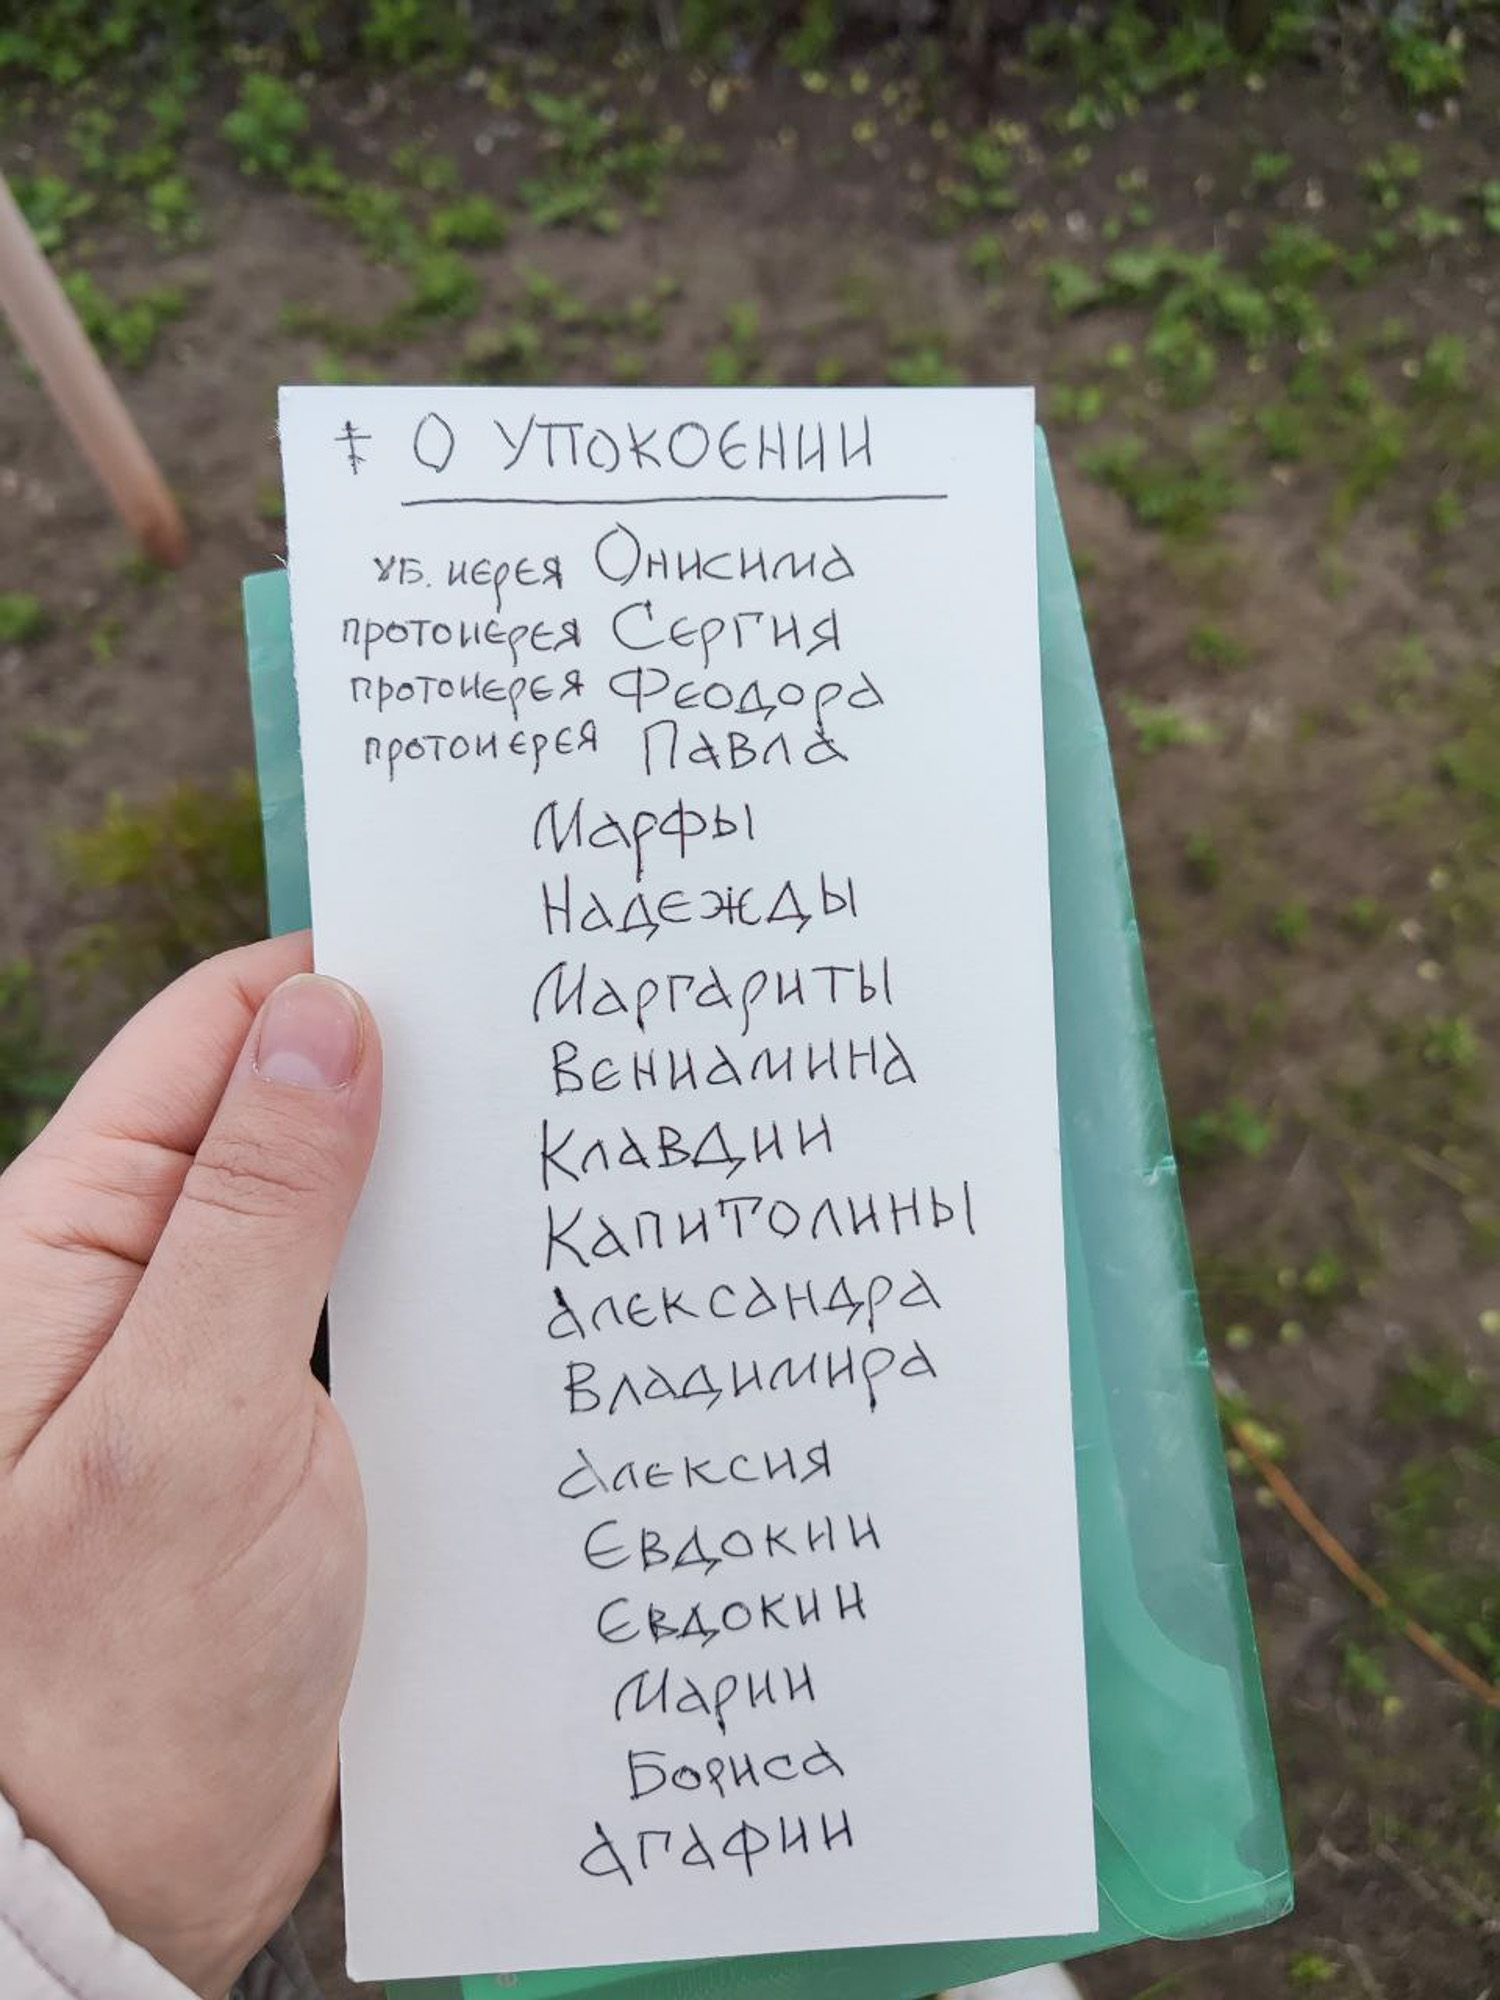 ☦ О УПОКОЕНИИ
УБ. ИЕРЕЯ Онисима
ПРОТОИЕРЕЯ Сергия
ПРОТОИЕРЕЯ Феодора
ПРОТОИЕРЕЯ Павла
Марфы
Надежды
Маргариты
Вениамина
Клавдии
Капитолины
Александра
Владимира
Алексия
Евдокии
Евдокии
Марии
Бориса
Агафии